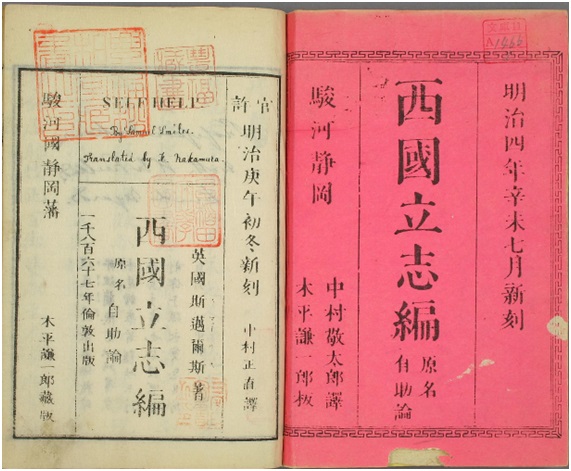 明治四年辛未七月新刻
西國立志編
原名
自助論
駿河靜岡
中村敬太郎譯
木平謙一郎板
官許
明治庚午初冬新刻
中村正直譯
英國斯邁爾斯著
西國立志編
原名
自助論
一千八百六十七年倫敦出版
SELF HELP
By Samuel Smiles.
Translated by K. Nakamura.
駿河國靜岡藩
木平謙一郎藏版